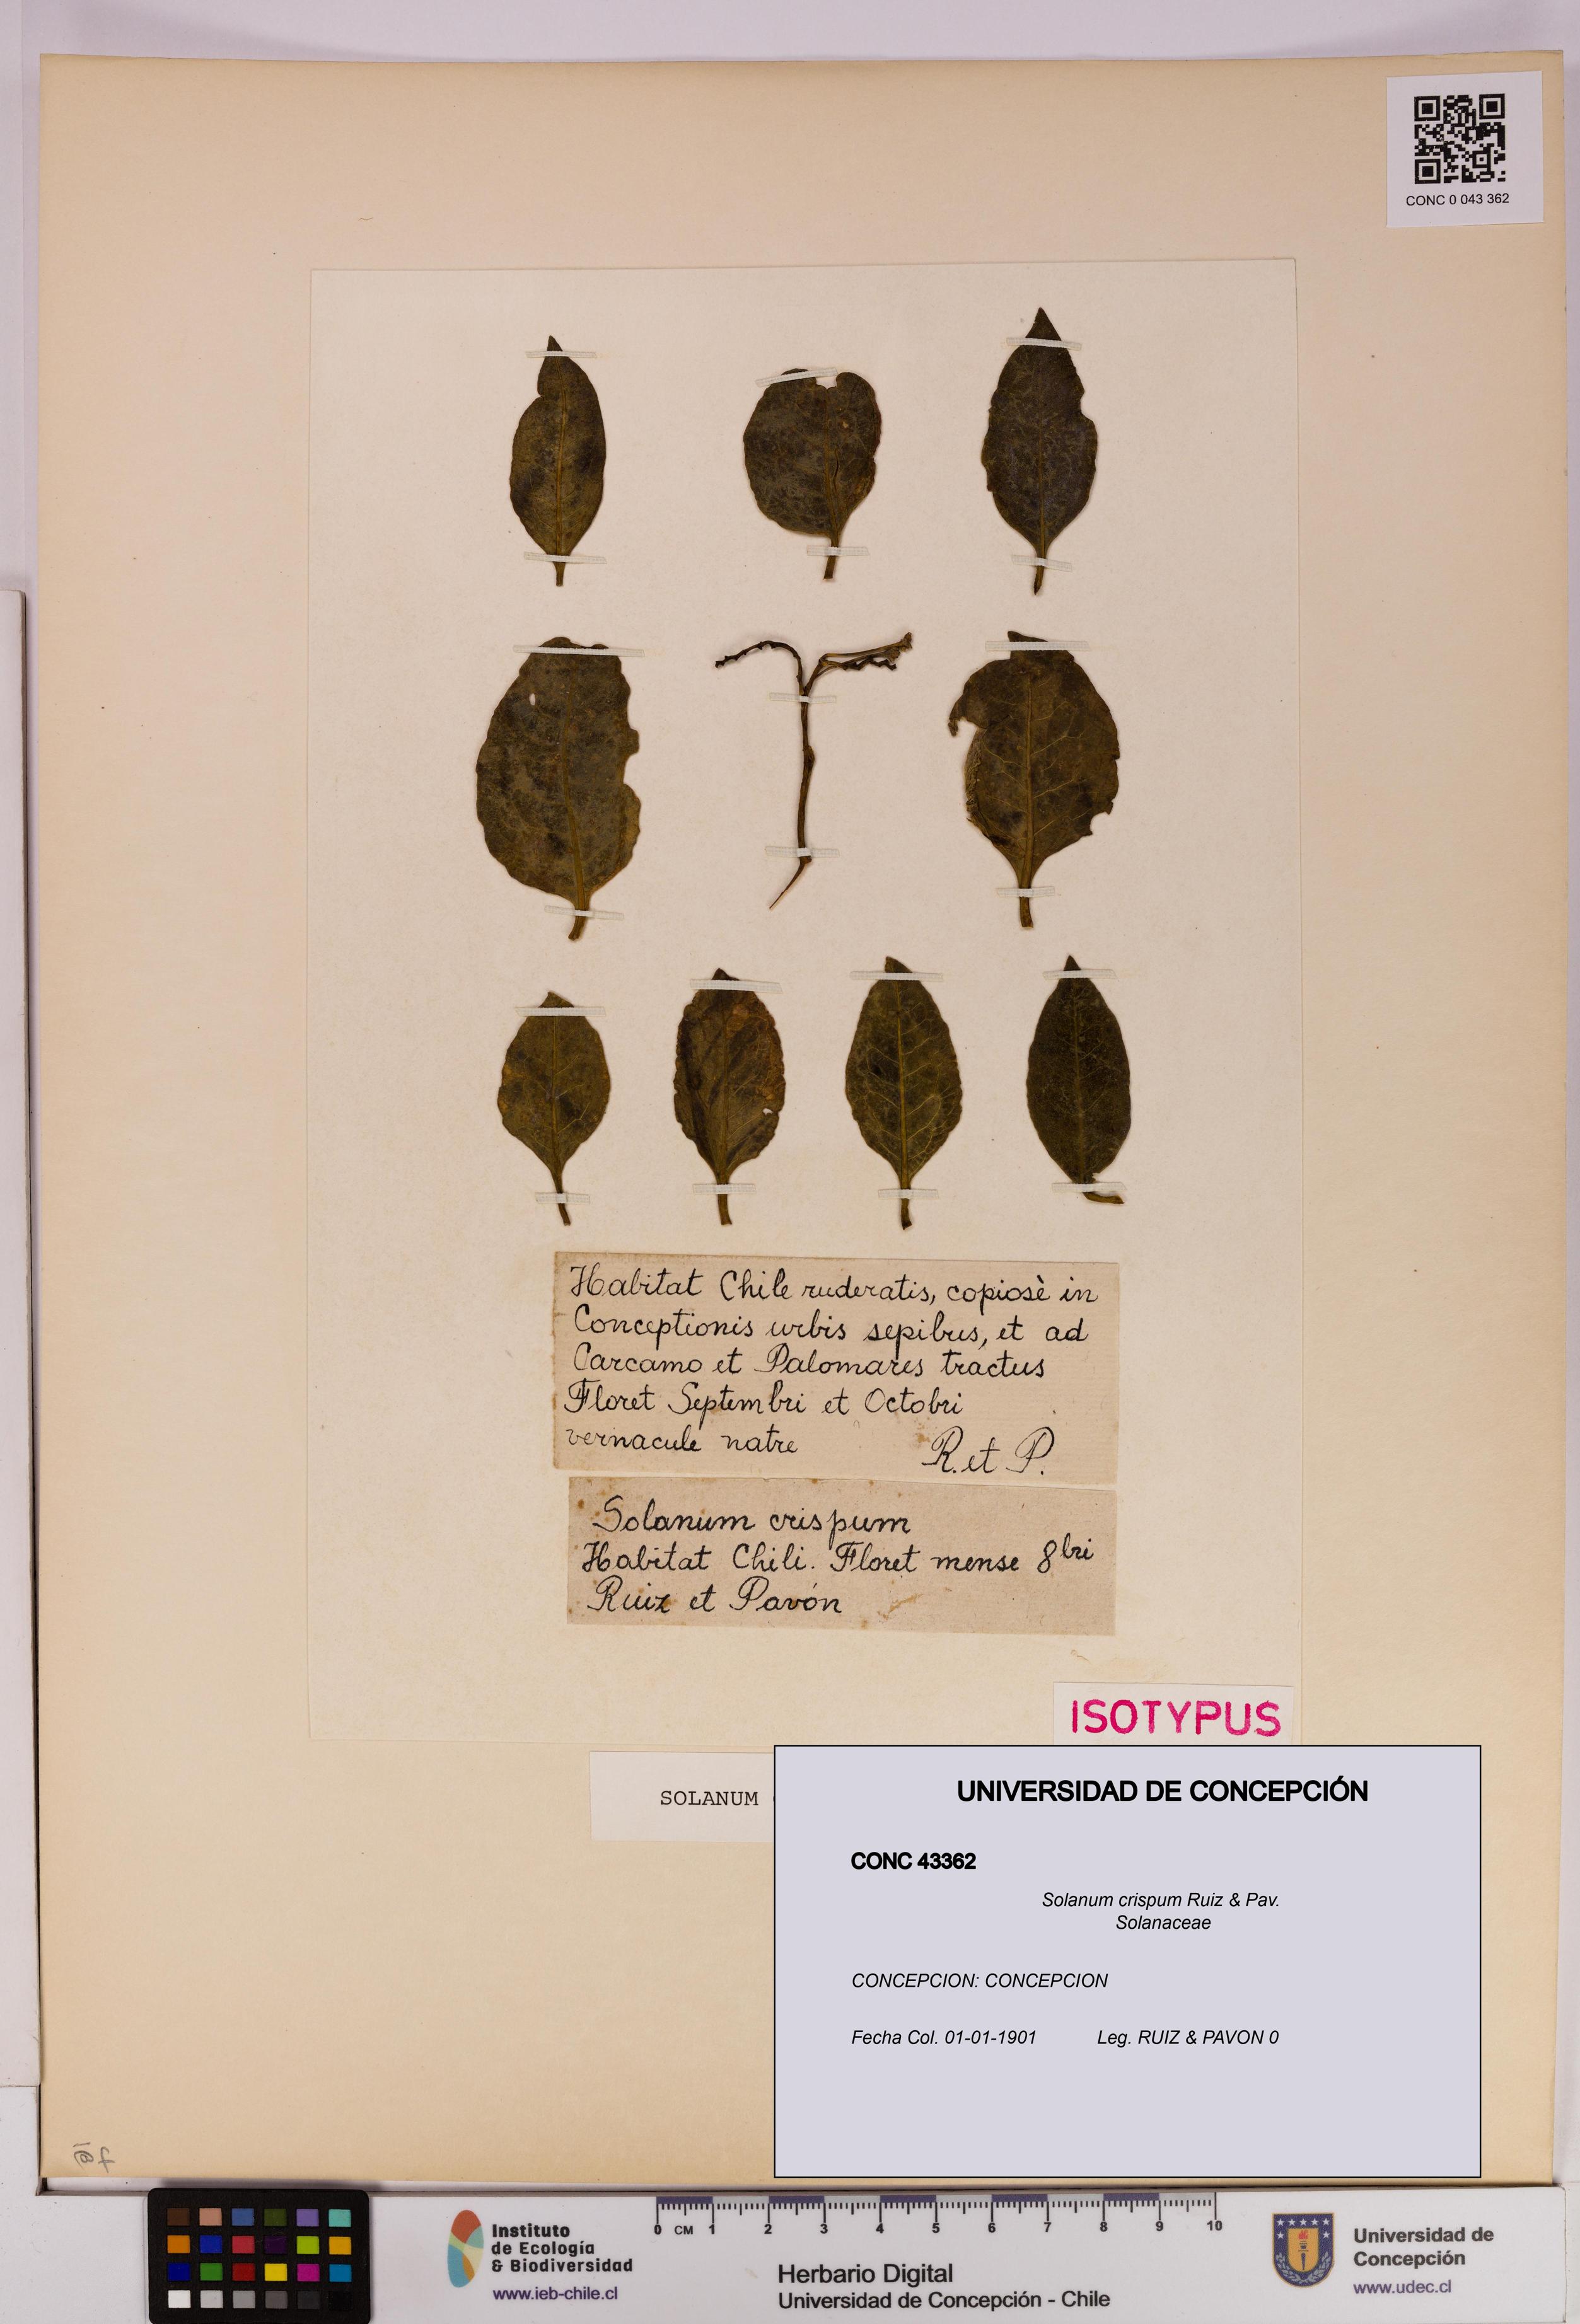 CONC 0 043 362
Habitat Chile ruderatis, copiosè in
Conceptionis urbis sepibus, et ad
Carcamo et Palomares tractus
Floret Septembri et Octobri
vernacule natre
R. et P.
Solanum crispum
Habitat Chili. Floret mense 8bri
Ruiz et Pavón
ISOTYPUS
SOLANUM
UNIVERSIDAD DE CONCEPCIÓN
CONC 43362
Solanum crispum Ruiz & Pav.
Solanaceae
CONCEPCION: CONCEPCION
Fecha Col. 01-01-1901 Leg. RUIZ & PAVON 0
Instituto
de Ecología
& Biodiversidad
www.ieb-chile.cl
0 CM 1 2 3 4 5 6 7 8 9 10
Herbario Digital
Universidad de Concepción - Chile
Universidad de
Concepción
www.udec.cl